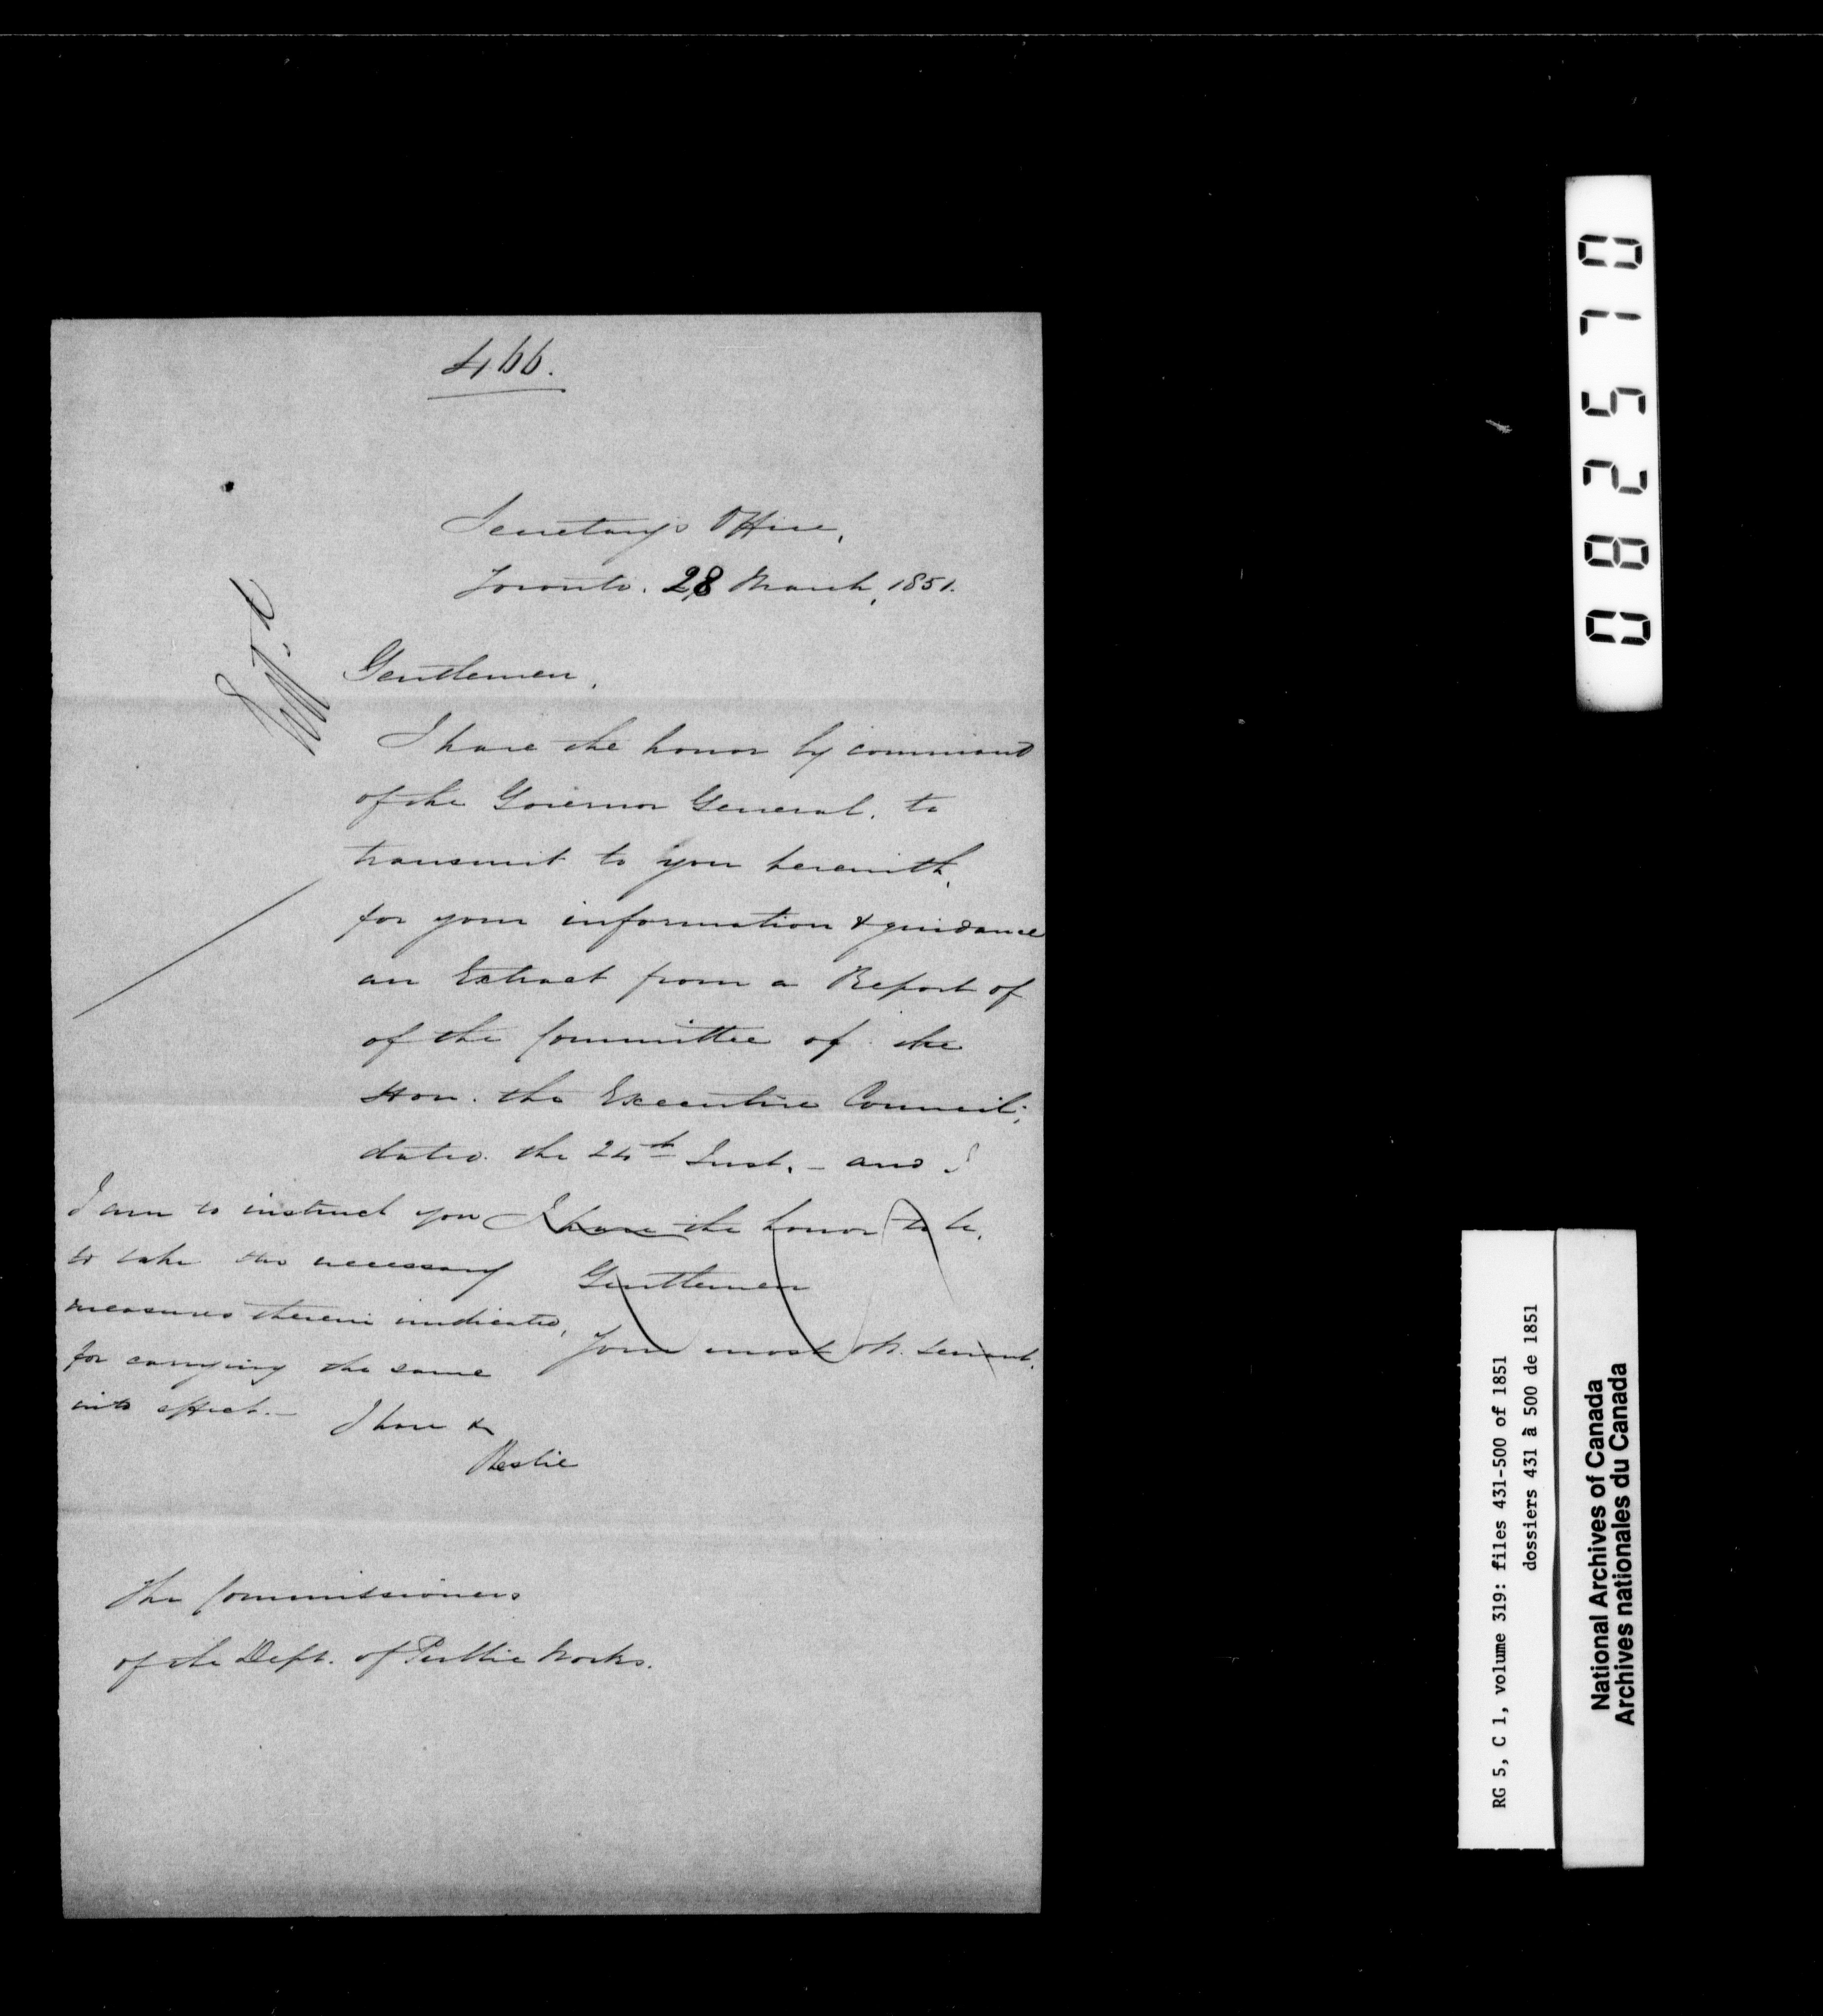 466.
Secretary's Office,
Toronto. 28 March, 1851.
Gentlemen,
I have the honor by command
of the Governor General, to
transmit to you herewith,
for your information & guidance
an Extract from a Report of
of the Committee of the
Hon. the Executive Council;
dated the 24th Inst. - and I
I have the honor to be,
Gentlemen
Your most ob. servant.
I am to instruct you
to take the necessary
measures therein indicated,
for carrying the same
into effect. -
I have &
JLeslie
The Commissioners
of the Dept. of Public Works.
082510
RG 5, C 1, volume 319: files 431-500 of 1851
dossiers 431 à 500 de 1851
National Archives of Canada
Archives nationales du Canada